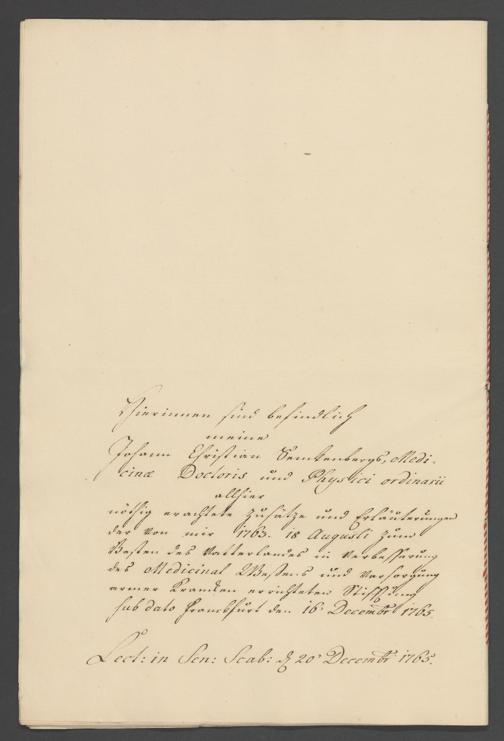 Hierinnen sind befindlich
meine
Johann Christian Senckenbergs, Medi-
cinæ Doctoris und Physici ordinarii
allhier
nöthig erachtete Zusätze und Erläuterungen
der von mir 1763. 18 Augusti zum
Besten des Vatterlandes in Verbesserung
des Medicinal Weesens und Versorgung
armer Krancken errichteten Stifftung
sub dato Franckfurt den 16. Decembr. 1765.
Lect: in Sen: Scab: d. 20. Decembr. 1765.